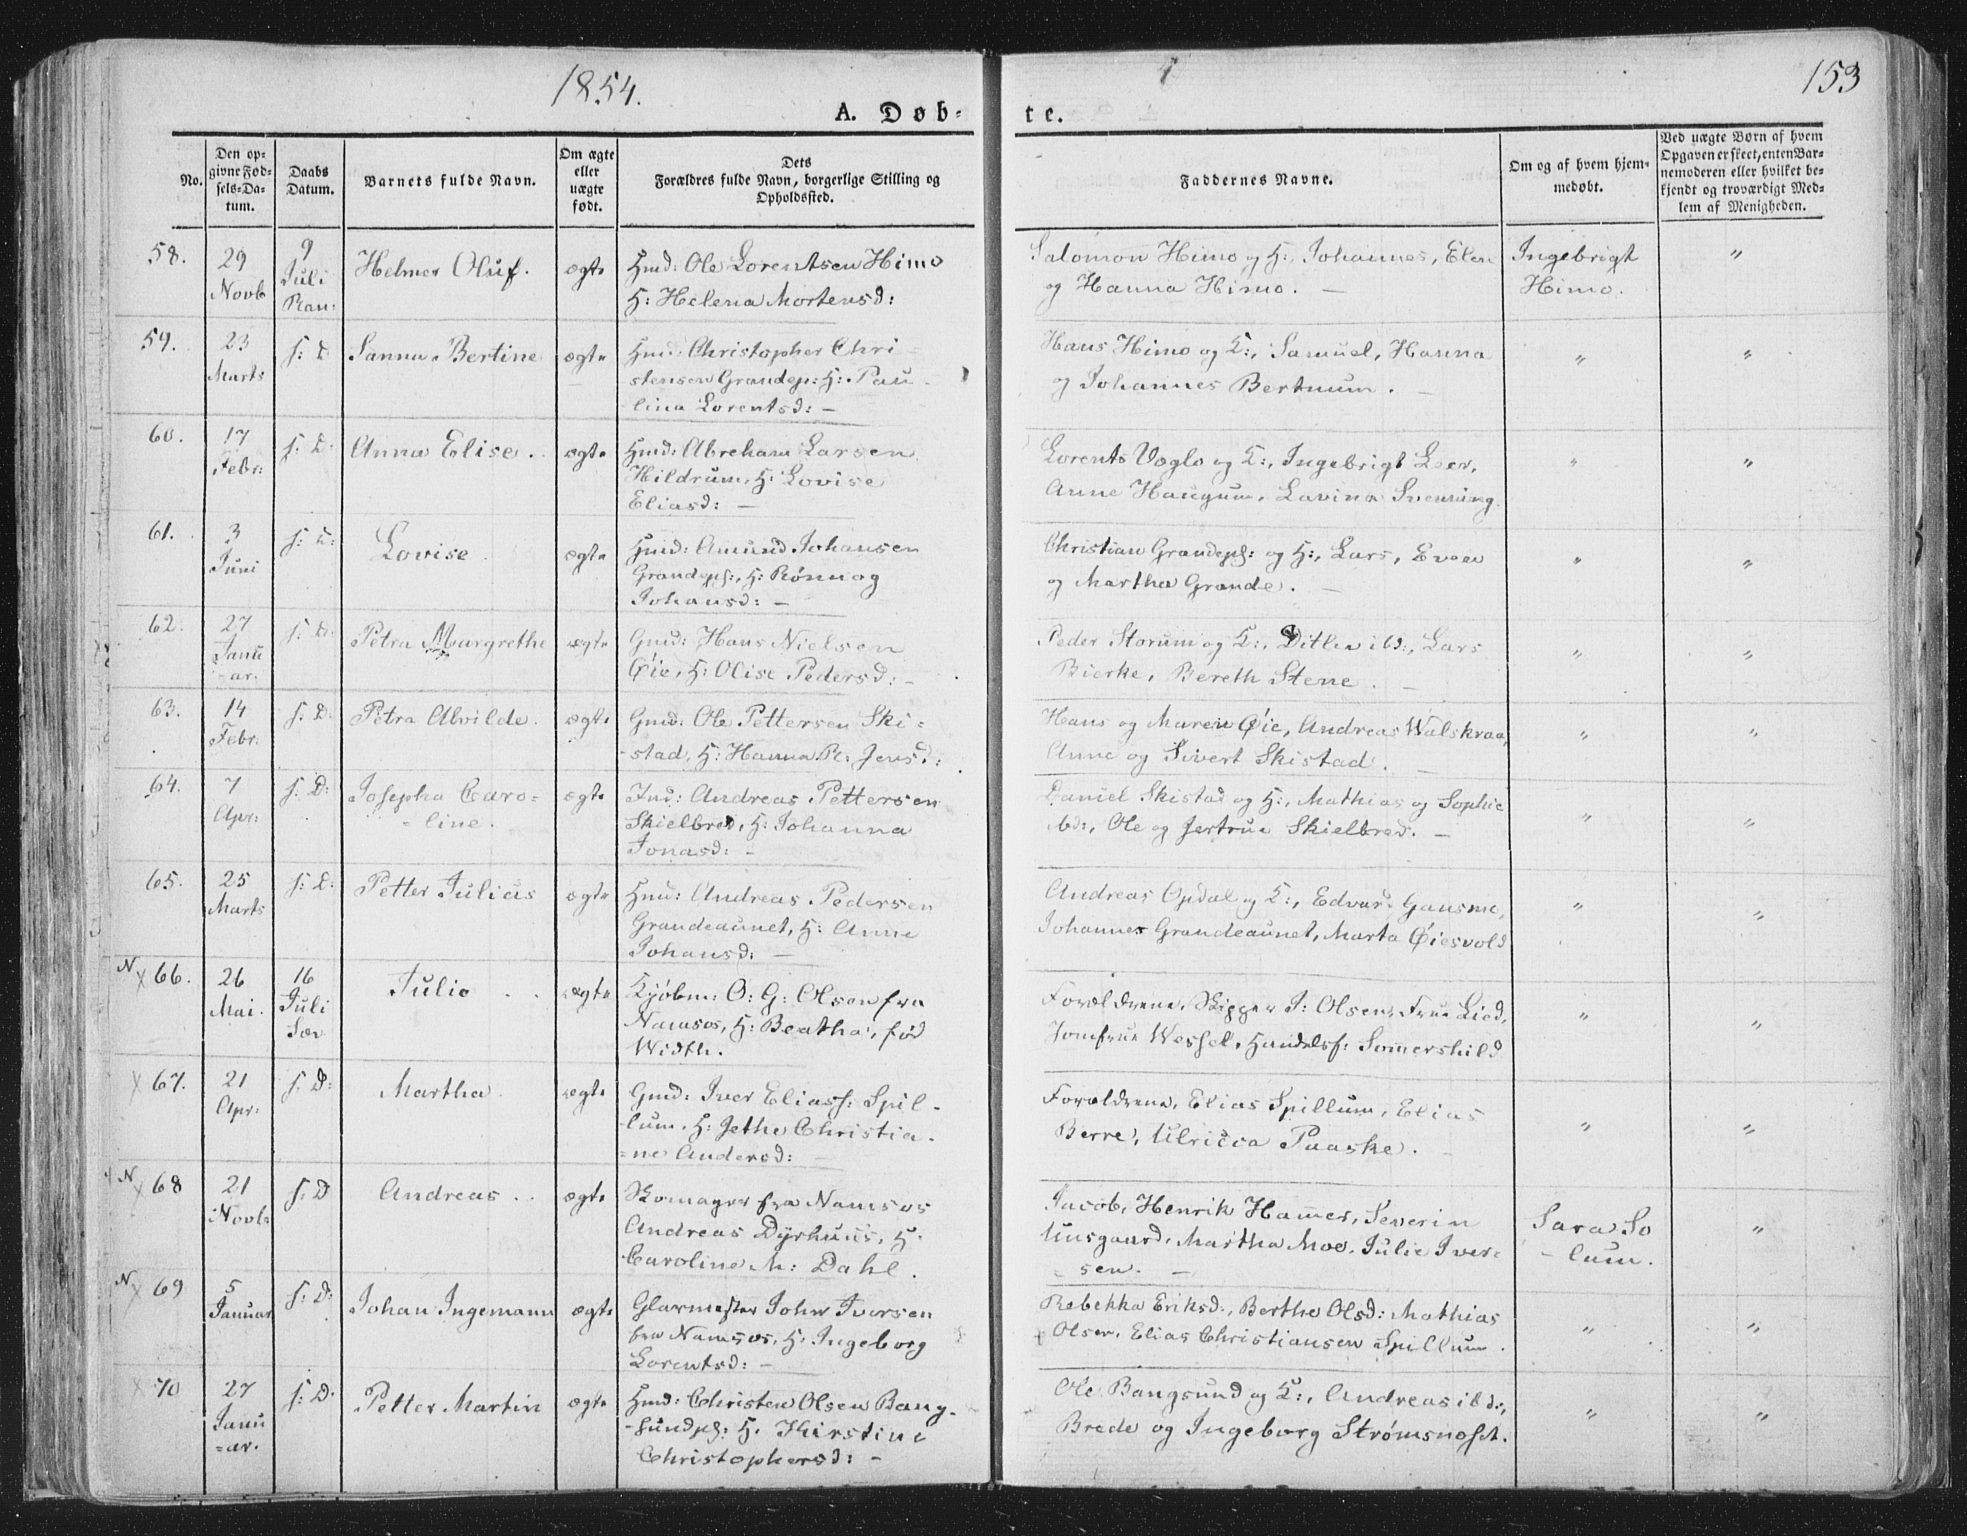 1854.
153
A. Døb-
te.
No.
Den op-
givne Fød-
sels-Da-
tum.
Daabs
Datum.
Barnets fulde Navn.
Om ægte
eller
uægte
født.
Dets
Forældres fulde Navn, borgerlige Stilling og
Opholdssted.
Faddernes Navne.
Om og af hvem hjem-
medøbt.
Ved uægte Børn af hvem
Opgaven er skeet, enten Bar-
nemoderen eller hvilket be-
kjendt og troværdigt Med-
lem af Menigheden.
58.
29
Novb
9
Juli
Ran:
Helmer Oluf.
ægte
Hmd: Ole Lorentsen Himo
H: Helena Mortensd:
Salomon Himo og H:, Johannes, Elen
og Hanna Himo. —
Ingebrigt
Himo.
"
59.
23
Marts
s: D
Sanna Bertine
ægte
Hmd: Christopher Chri-
stensen Grandep: H: Pau-
lina Lorentsd: —
Hans Himo og K:, Samuel, Hanna
og Johannes Bertnum. —
"
"
60.
17
Febr:
s: D:
Anna Elise.
ægte
Hmd: Abreham Larsen
Hildrum, H: Lovise
Eliasd: —
Lorents Voglo og K:, Ingebrigt Leer,
Anne Haugum, Lavina Svenning
"
"
61.
3
Juni
s: D:
Lovise
ægte
Hmd: Amund Johansen
Grandepl:, H: Rønnog
Johansd: —
Christian Grandepl: og H:, Lars, Even
og Martha Grande. —
"
"
62.
27
Janu
-ar.
s: D:
Petra Margrethe
ægte
Gmd: Hans Nielsen
Øie, H: Olise Pedersd: —
Peder Storum og K:, Ditlev ibd:, Lars
Bierke, Bereth Stene. —
"
"
63.
14
Febr:
s: D:
Petra Alvilde.
ægte
Gmd: Ole Pettersen Ski-
-stad, H: Hanna R: Jensd:
Hans og Maren Øie, Andreas Walskraa,
Anne og Sivert Skistad. —
"
"
64.
7
Apr:
s: D:
Josepha Caro-
-line.
ægte
Ind: Andreas Pettersen
Skielbred, H: Johanna
Jonasd: —
Daniel Skistad og H:, Mathias og Sophie
ibd:, Ole og Jertrue Skielbred. —
"
"
65.
25
Marts
s: D:
Petter Julius
ægte
Hmd: Andreas Pedersen
Grandeaunet, H: Anne
Johansd: —
Andreas Opdal og K:, Edvar Gansmo,
Johannes Grandeaunet, Marta Øiesvold
"
"
N x 66.
26
Mai.
16
Juli
Sæv
Julie
ægte
Kjøbm: O: G: Olsen fra
Namsos, H: Beatha, fød
Width.
Forældrene, Skipper J: Olsen, Frue Lied,
Jomfrue Wessel, Handelsf: Sommershild
"
"
x 67.
21
Apr:
s: D:
Martha
ægte
Gmd: Iver Eliass: Spil-
-lum, H: Jethe Christia-
-ne Andersd: —
Forældrene, Elias Spillum, Elias
Berre, Ulricca Paaske. —
"
"
N x 68
21
Novb
s: D
Andreas
ægte
Skomager fra Namsos
Andreas Dyrhuus, H:
Caroline M: Dahl.
Jacob, Henrik Hammer, Severin
Uusgaard, Martha Moe, Julie Iver-
-sen. —
Sara So
-lum.
"
N x 69
5
Januar
s: D:
Johan Ingemann
ægte
Glarmester John Iversen
fra Namsos, H: Ingeborg
Lorentsd: —
Rebekka Eriksd:, Berthe Olsd: Mathias
Olsen, Elias Christiansen Spillum.
"
"
x 70
27
Janu
-ar.
s: D:
Petter Martin
ægte
Hmd: Christen Olsen Bang-
-sundpl: H. Kirstine
Christophersd: —
Ole Bangsund og K:, Andreas ibd:,
Brede og Ingeborg Strømsnoset.
"
"